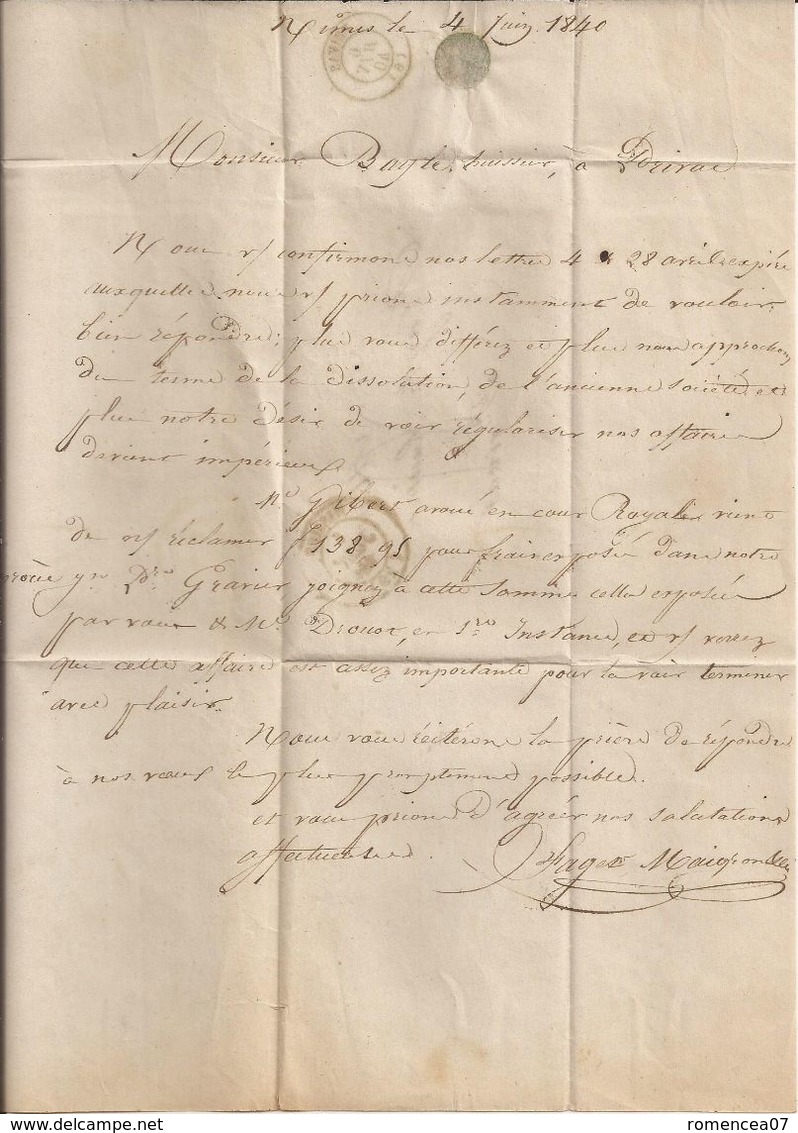 Nîmes le 4 Juin 1840
Monsieur Bayle huissier, à Privac
Nous v/ confirmons nos lettres 4 & 28 avril expiré
auxquelles nous v/ prions instamment de vouloir
bien répondre; plus vous différez et plus nous approchons
du terme de la dissolution, de l'ancienne société et
plus notre désir de voir régulariser nos affaires
devient impérieux
Me Gibert avoué en cour Royale vient
de n/ réclamer f 138 95 pour frais exposés dans notre
procès Gravier joignez à cette somme celles exposées
par vous & Me Drouot, en 1re Instance, et v/ verrez
que cette affaire est assez importante pour la voir terminer
avec plaisir.
Nous vous réitérons la prière de répondre
à nos vœux le plus promptement possible.
et vous prions d'agréer nos salutations
affectueuses.
Fages Maigron
romencea07